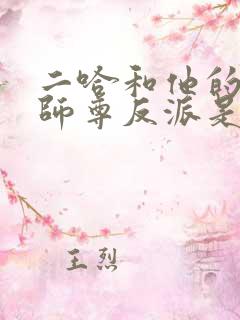 二哈和他的
師尊反派是
王烈